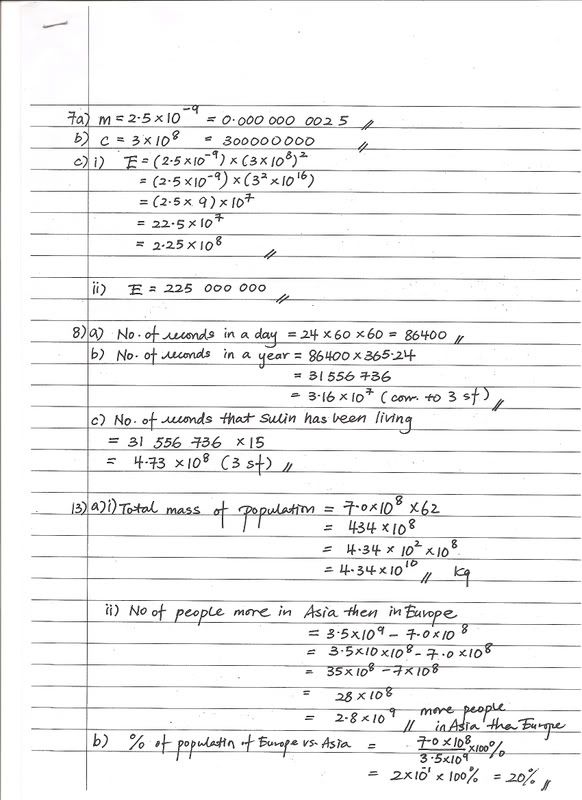 7a) m = 2.5 × 10⁻⁹ = 0.000 000 002 5 //
b) c = 3 × 10⁸ = 300000000 //
c) i) E = (2.5×10⁻⁹) × (3×10⁸)²
= (2.5×10⁻⁹) × (3² × 10¹⁶)
= (2.5 × 9) × 10⁷
= 22.5 × 10⁷
= 2.25 × 10⁸ //
ii) E = 225 000 000 //
8) a) No. of seconds in a day = 24 × 60 × 60 = 86400 //
b) No. of seconds in a year = 86400 × 365.24
= 31 556 736
= 3.16 × 10⁷ (corr. to 3 sf) //
c) No. of seconds that Sulin has been living
= 31 556 736 × 15
= 4.73 × 10⁸ (3 sf) //
13) a) i) Total mass of population = 7.0×10⁸ × 62
= 434 × 10⁸
= 4.34 × 10² × 10⁸
= 4.34 × 10¹⁰ // kg
ii) No of people more in Asia then in Europe
= 3.5×10⁹ - 7.0×10⁸
= 3.5×10×10⁸ - 7.0×10⁸
= 35×10⁸ - 7×10⁸
= 28 × 10⁸
= 2.8 × 10⁹ // more people
in Asia then Europe
b) % of populatin of Europe vs. Asia = 7.0 × 10⁸ / 3.5×10⁹ × 100%
= 2×10⁻¹ × 100% = 20% //